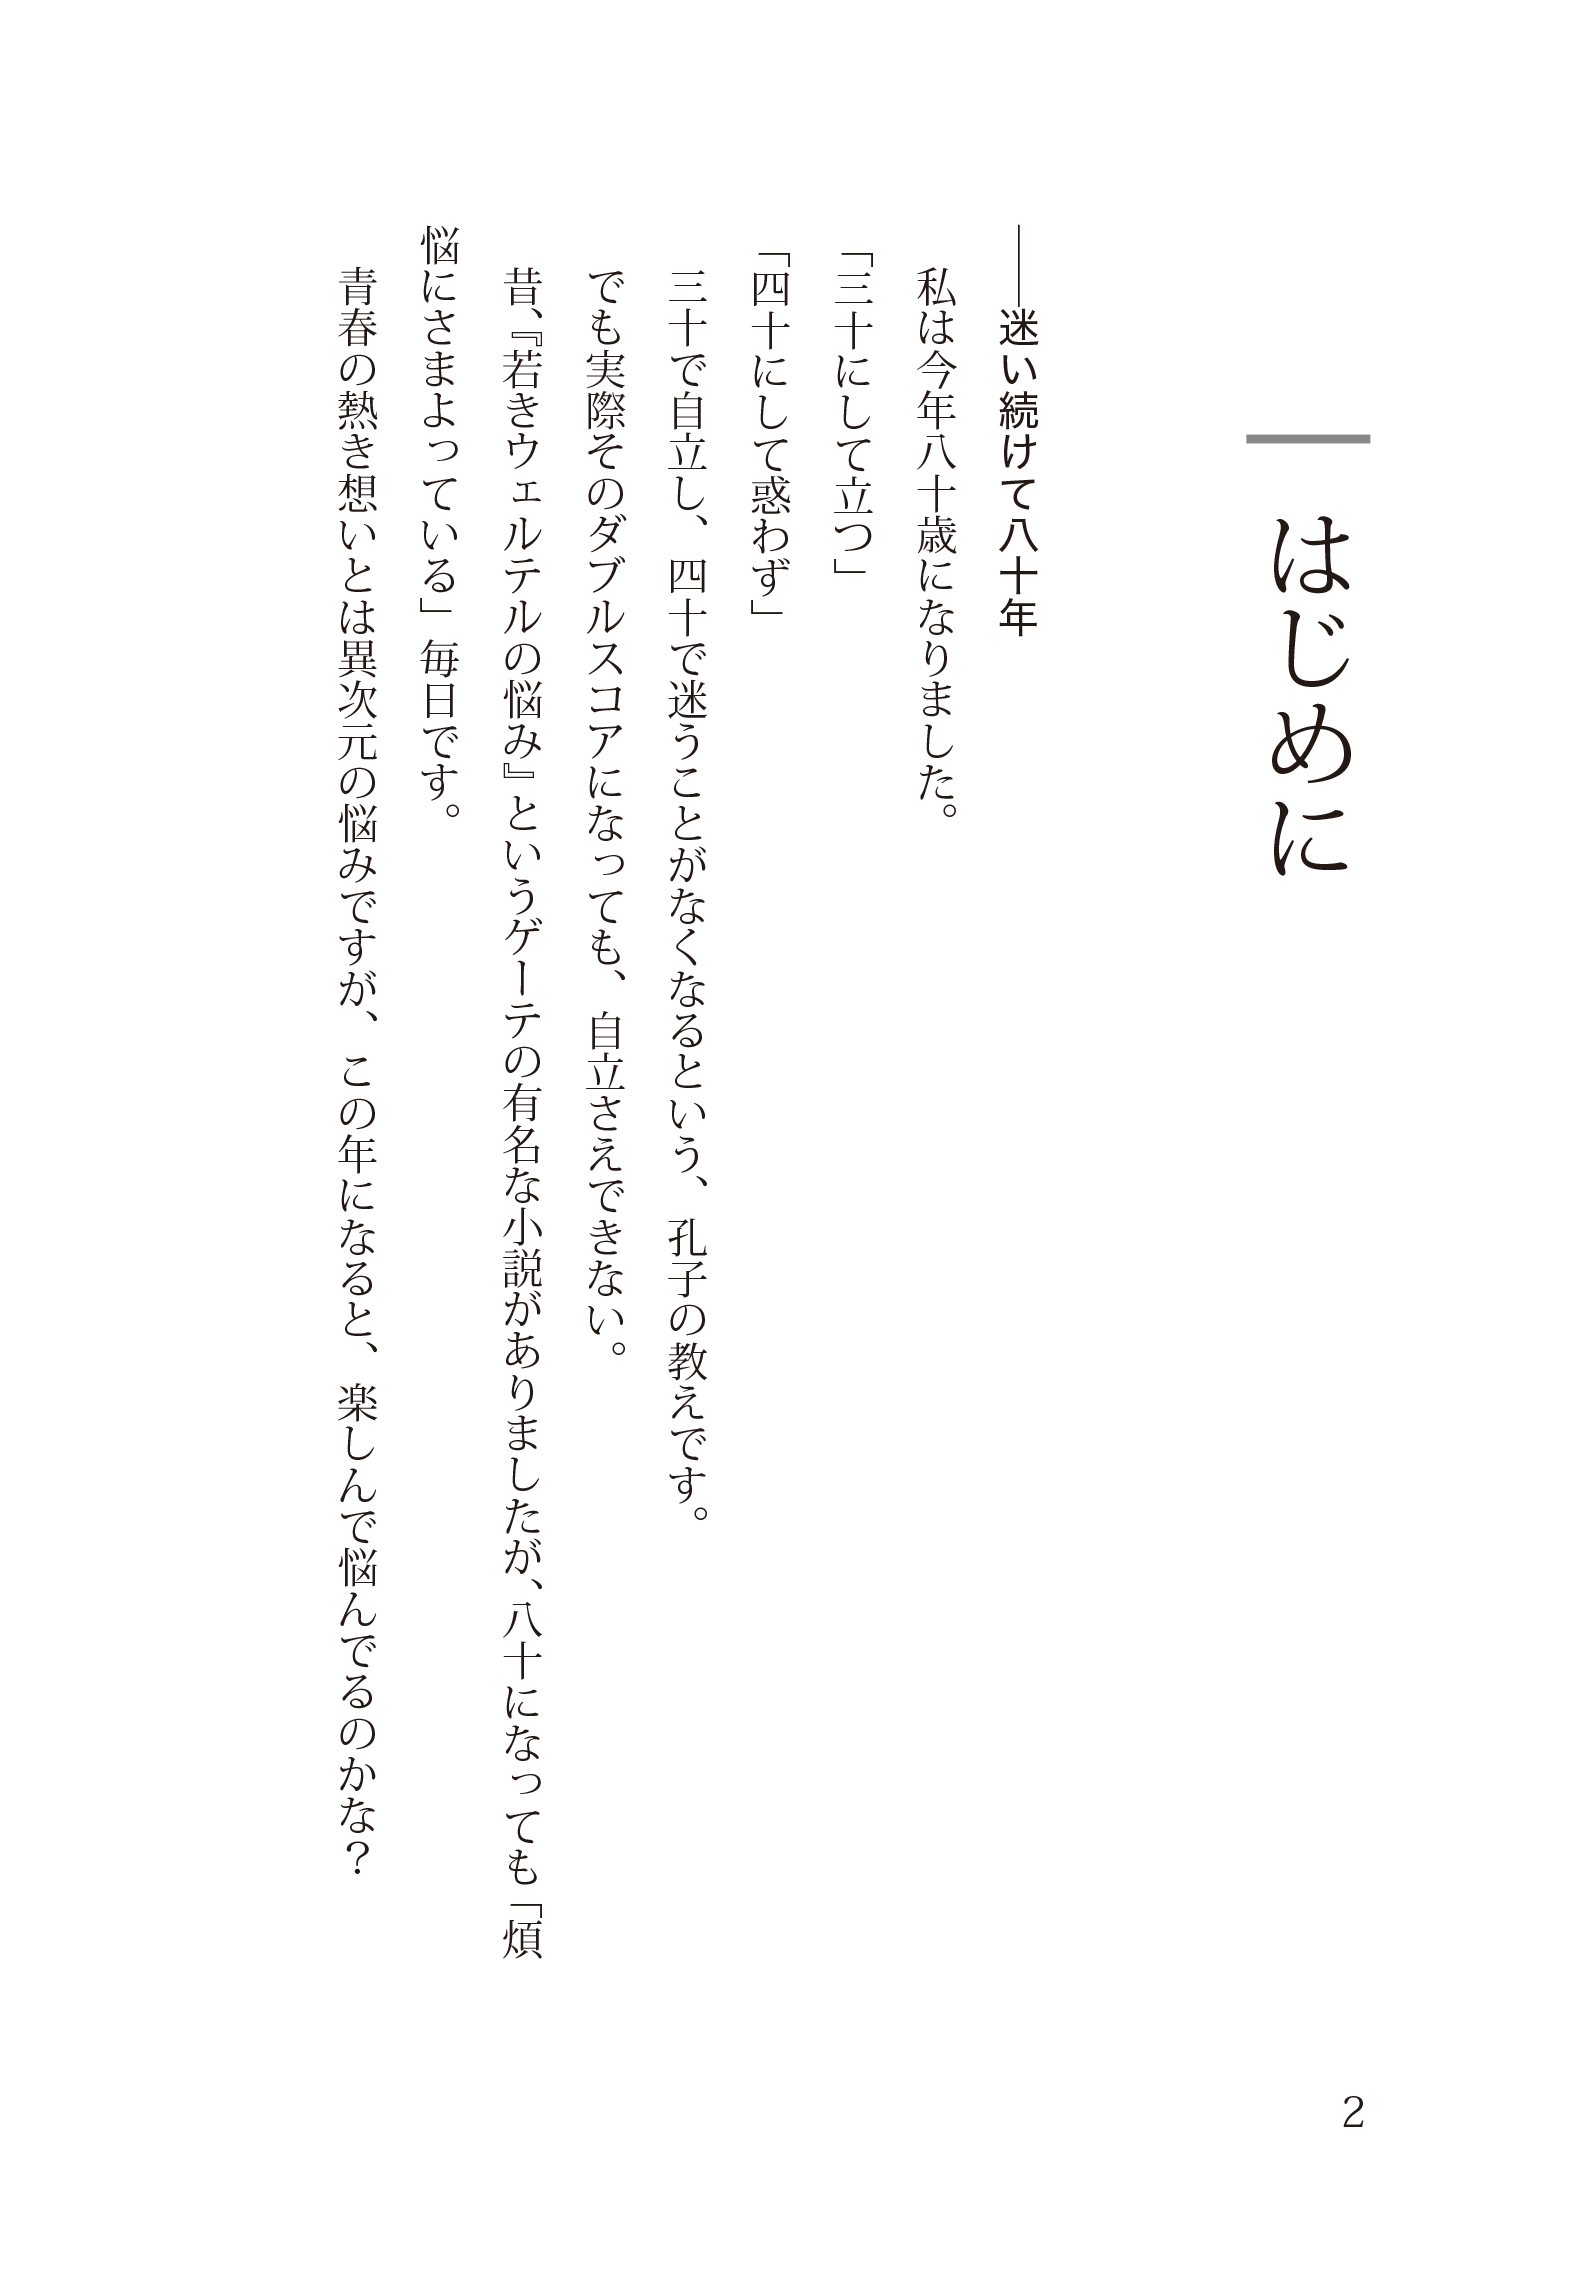 はじめに
――迷い続けて八十年
私は今年八十歳になりました。
「三十にして立つ」
「四十にして惑わず」
三十で自立し、四十で迷うことがなくなるという、孔子の教えです。
でも実際そのダブルスコアになっても、自立さえできない。
昔、『若きウェルテルの悩み』というゲーテの有名な小説がありましたが、八十になっても「煩
悩にさまよっている」毎日です。
青春の熱き想いとは異次元の悩みですが、この年になると、楽しんで悩んでるのかな？
2